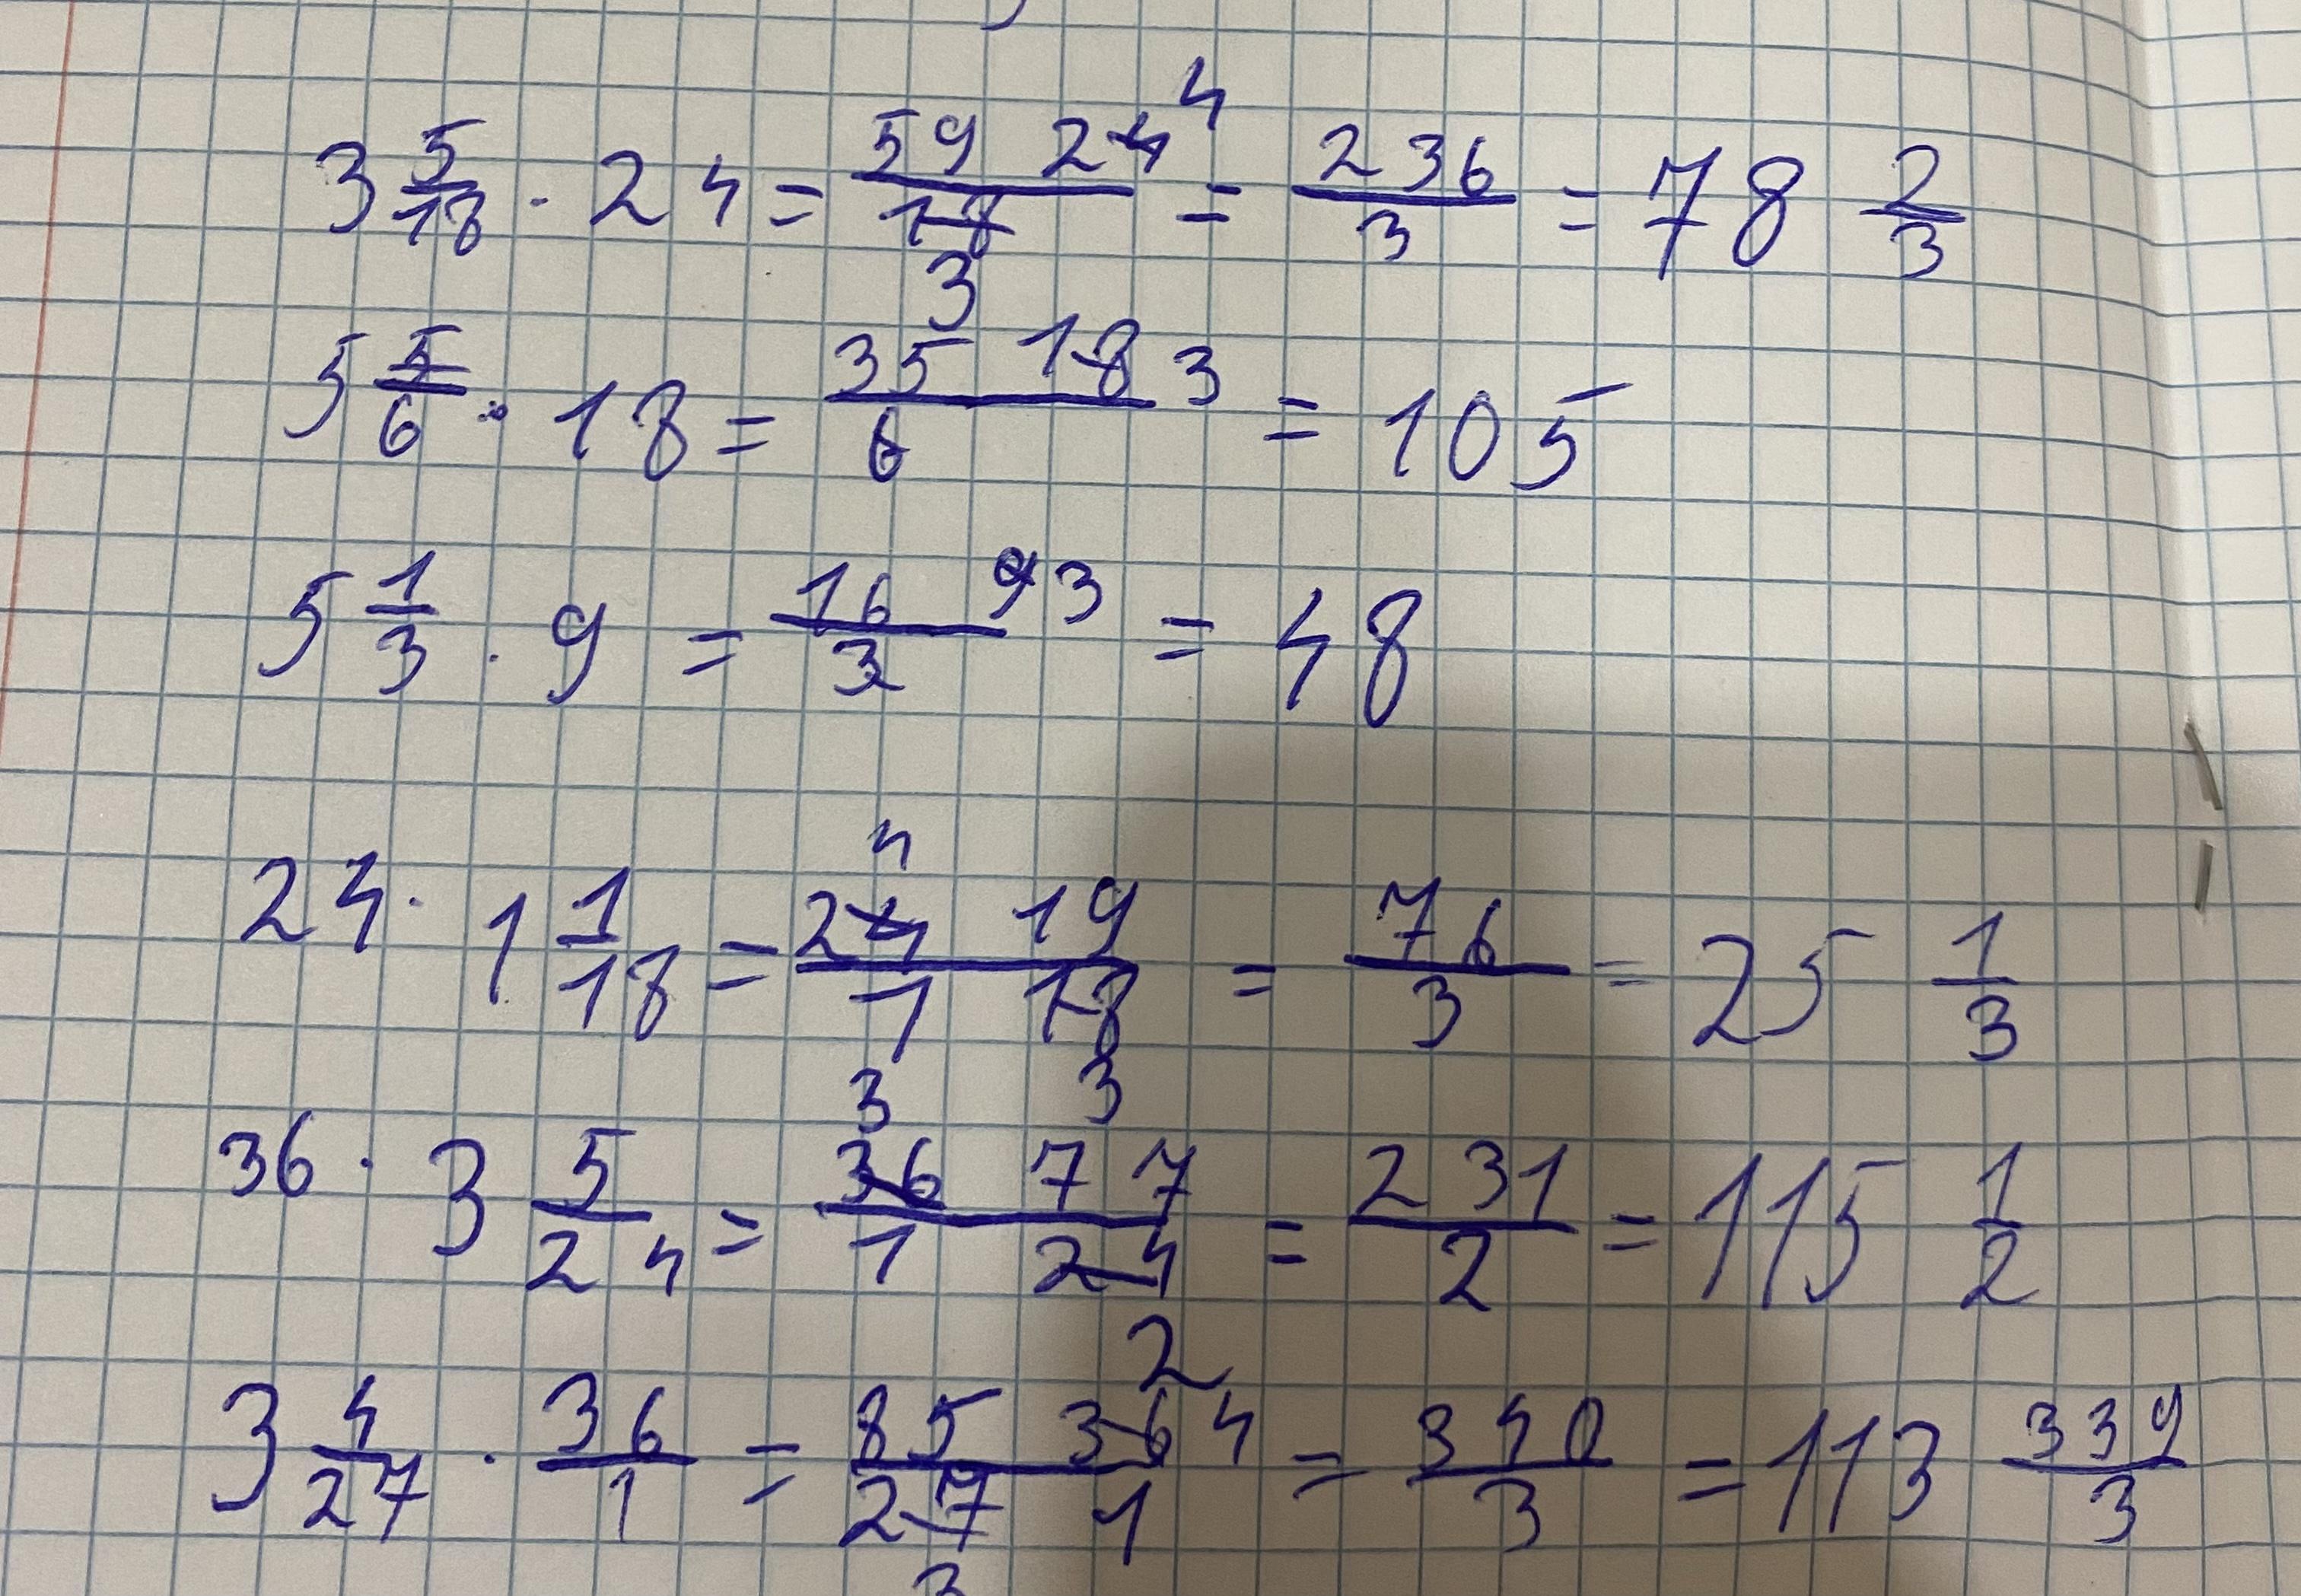 3 5/18 · 24 = 59 24 4/18 3 = 236/3 = 78 2/3
5 5/6 · 18 = 35 18 3/6 = 105
5 1/3 · 9 = 16 9 3/3 = 48
24 · 1 1/18 = 24 4 19/1 18 3 = 76/3 = 25 1/3
36 · 3 5/24 = 3 36 77/1 24 2 = 231/2 = 115 1/2
3 4/27 · 36/1 = 85 36 4/27 1 3 = 340/3 = 113 339/3